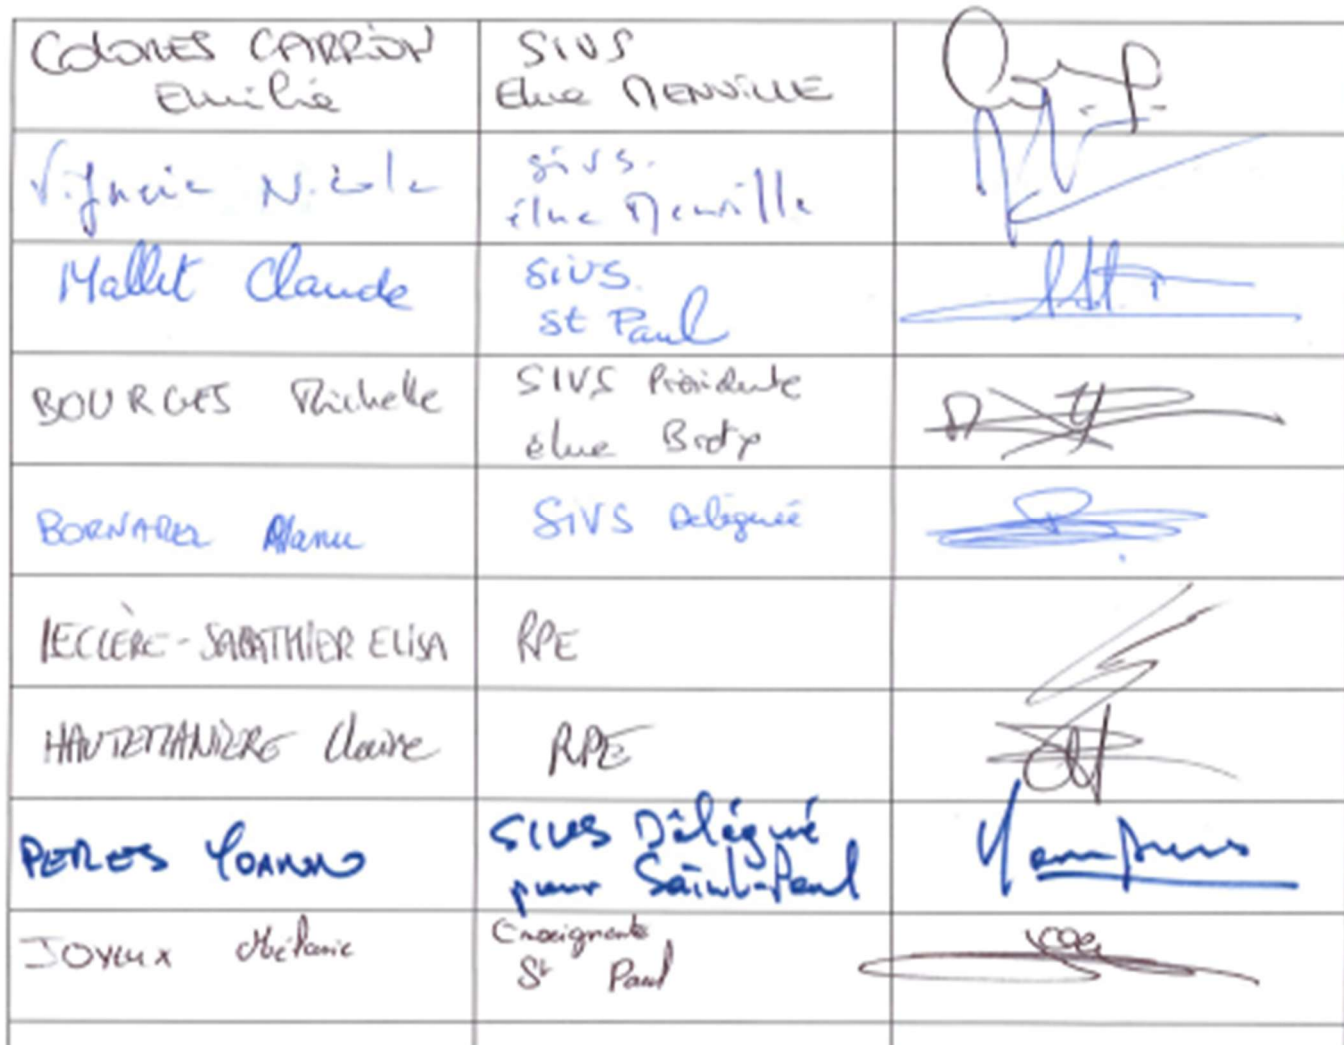 COLONES CARRION
Emilie
SIVS
Elue MENVILLE
Nicole
SIVS.
élue Menville
Mallet Claude
SIVS
St Paul
BOURGES Michelle
SIVS Présidente
élue Bretx
BORNAREL
SIVS Déléguée
LECLÈRE-SABATHIER ELISA
RPE
HAUTEMANIÈRE Claire
RPE
PERLES YOANN
SIVS Délégué
pour Saint-Paul
JOYEUX Mélanie
Enseignante
St Paul